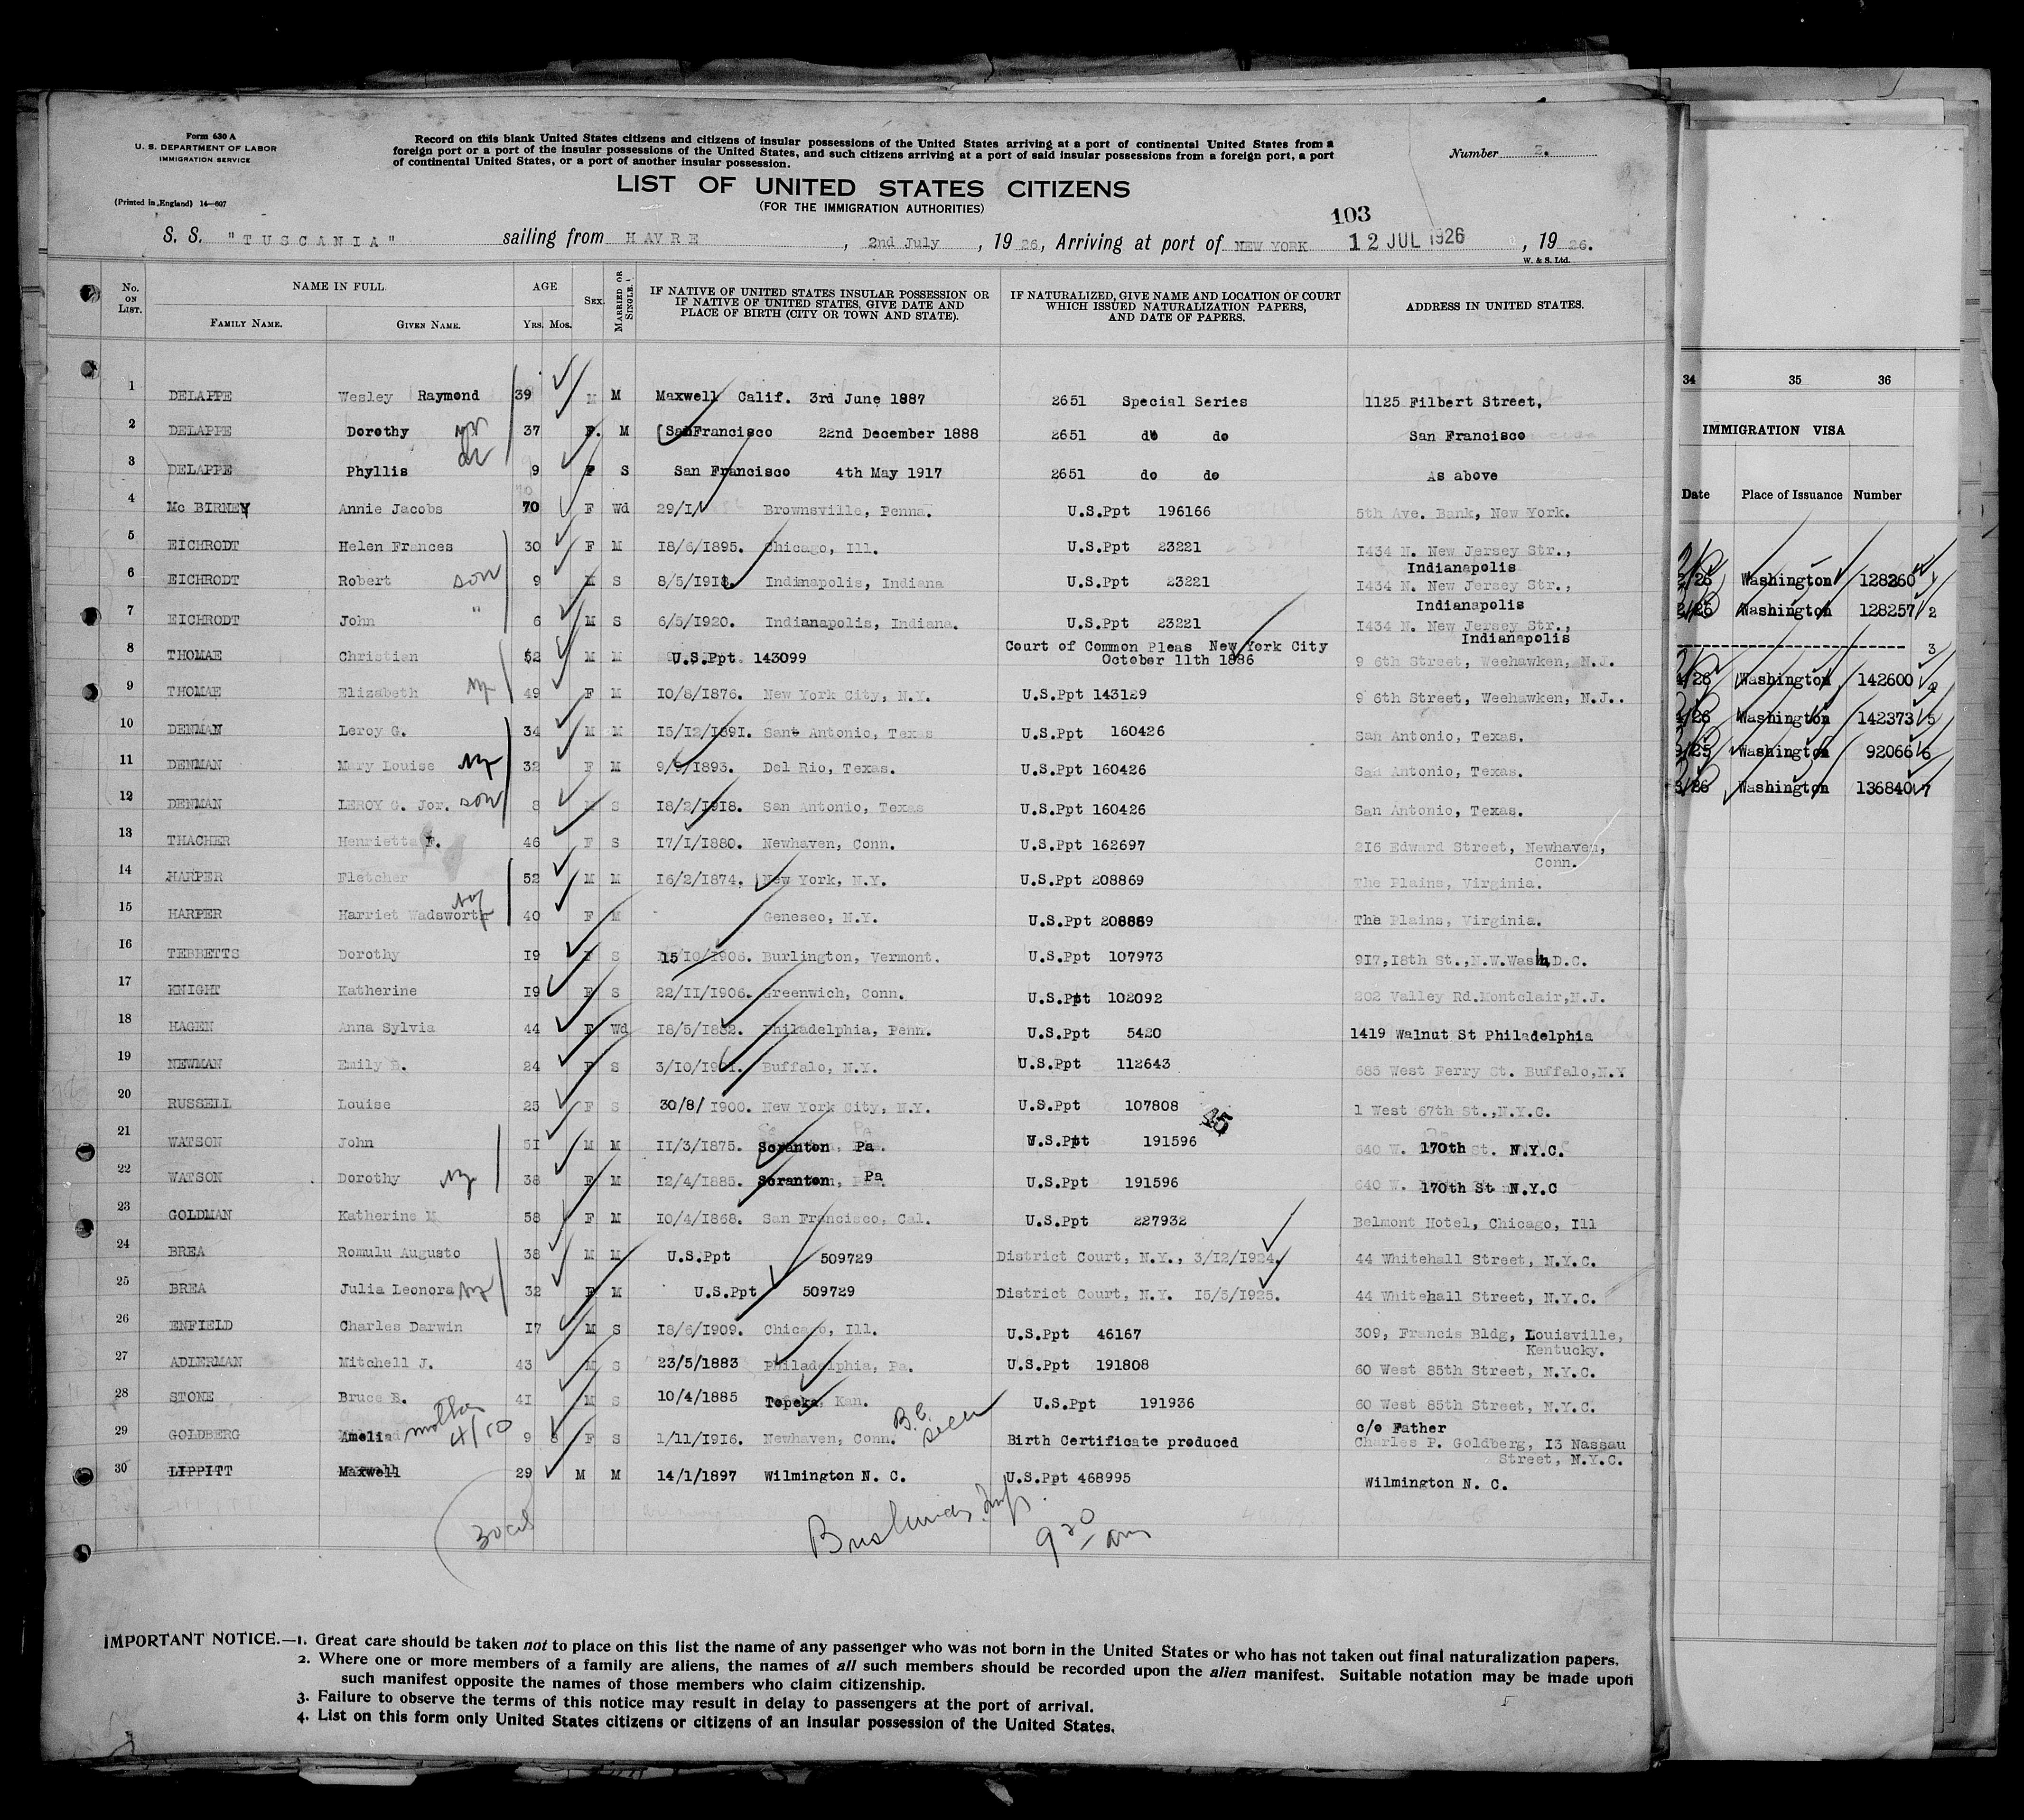 Form 630 A
U. S. DEPARTMENT OF LABOR
IMMIGRATION SERVICE
(Printed in England) 14—607
Record on this blank United States citizens and citizens of insular possessions of the United States arriving at a port of continental United States from a
foreign port or a port of the insular possessions of the United States, and such citizens arriving at a port of said insular possessions from a foreign port, a port
of continental United States, or a port of another insular possession.
Number 2.
LIST OF UNITED STATES CITIZENS
(FOR THE IMMIGRATION AUTHORITIES)
103
S. S. "TUSCANIA" sailing from HAVRE, 2nd July, 19 26, Arriving at port of NEW YORK 12 JUL 1926, 19 26.
W. & S. Ltd.
No. ON LIST. NAME IN FULL FAMILY NAME. GIVEN NAME. AGE YRS. MOS. SEX. MARRIED OR SINGLE. IF NATIVE OF UNITED STATES INSULAR POSSESSION OR IF NATIVE OF UNITED STATES, GIVE DATE AND PLACE OF BIRTH (CITY OR TOWN AND STATE). IF NATURALIZED, GIVE NAME AND LOCATION OF COURT WHICH ISSUED NATURALIZATION PAPERS, AND DATE OF PAPERS. ADDRESS IN UNITED STATES.
1 DELAPPE Wesley Raymond 39 M M Maxwell Calif. 3rd June 1887 2651 Special Series 1125 Filbert Street,
2 DELAPPE Dorothy 37 F. M SanFrancisco 22nd December 1888 2651 do do San Francisco
3 DELAPPE Phyllis 9 F S San Francisco 4th May 1917 2651 do do As above
4 Mc BIRNEY Annie Jacobs 70 F Wd 29/1/ Brownsville, Penna. U.S.Ppt 196166 5th Ave. Bank, New York.
5 EICHRODT Helen Frances 30 F M 18/6/1895. Chicago, Ill. U.S.Ppt 23221 1434 N. New Jersey Str.,
Indianapolis
6 EICHRODT Robert son 9 M S 8/5/1918. Indinapolis, Indiana U.S.Ppt 23221 1434 N. New Jersey Str.,
Indianapolis
7 EICHRODT John " 6 M S 6/5/1920. Indianapolis, Indiana. U.S.Ppt 23221 1434 N. New Jersey Str.,
Indianapolis
8 THOMAE Christian 52 M M U.S.Ppt. 143099 Court of Common Pleas New York City
October 11th 1886 9 6th Street, Weehawken, N.J.
9 THOMAE Elizabeth 49 F M 10/8/1876. New York City, N.Y. U.S.Ppt 143129 9 6th Street, Weehawken, N.J..
10 DENMAN Leroy G. 34 M M 15/12/1891. Sant Antonio, Texas U.S.Ppt 160426 San Antonio, Texas.
11 DENMAN Mary Louise 32 F M 9/9/1893. Del Rio, Texas. U.S.Ppt 160426 San Antonio, Texas.
12 DENMAN LEROY G. Jor. son 8 M S 18/2/1918. San Antonio, Texas U.S.Ppt 160426 San Antonio, Texas.
13 THACHER Henrietta F. 46 F S 17/1/1880. Newhaven, Conn. U.S.Ppt 162697 216 Edward Street, Newhaven,
Conn.
14 HARPER Fletcher 52 M M 16/2/1874. New York, N.Y. U.S.Ppt 208869 The Plains, Virginia.
15 HARPER Harriet Wadsworth 40 F M Geneseo, N.Y. U.S.Ppt 208869 The Plains, Virginia.
16 TEBBETTS Dorothy 19 F S 15/10/1906. Burlington, Vermont. U.S.Ppt 107973 917,18th St.,N.W.Wash,D.C.
17 KNIGHT Katherine 19 F S 22/11/1906. Greenwich, Conn. U.S.Ppt 102092 202 Valley Rd.Montclair,N.J.
18 HAGEN Anna Sylvia 44 F Wd 18/5/1882. Philadelphia, Penn. U.S.Ppt 5420 1419 Walnut St Philadelphia
19 NEWMAN Emily 24 F S 3/10/1901. Buffalo, N.Y. U.S.Ppt 112643 685 West Ferry St. Buffalo,N.Y
20 RUSSELL Louise 25 F S 30/8/ 1900. New York City, N.Y. U.S.Ppt 107808 1 West 67th St.,N.Y.C.
21 WATSON John 51 M M 11/3/1875. Scranton Pa. U.S.Ppt 191596 45 640 W. 170th St. N.Y.C.
22 WATSON Dorothy 38 F M 12/4/1885. Scranton, Pa U.S.Ppt 191596 640 W. 170th St. N.Y.C
23 GOLDMAN Katherine M 58 F M 10/4/1868. San Francisco, Cal. U.S.Ppt 227932 Belmont Hotel, Chicago, Ill
24 BREA Romulu Augusto 38 M M U.S.Ppt 509729 District Court, N.Y., 3/12/1924. 44 Whitehall Street, N.Y.C.
25 BREA Julia Leonora 32 F M U.S.Ppt 509729 District Court, N.Y. 15/5/1925. 44 Whitehall Street, N.Y.C.
26 ENFIELD Charles Darwin 17 M S 18/6/1909. Chicago, Ill. U.S.Ppt 46167 309, Francis Bldg, Louisville,
Kentucky.
27 ADLERMAN Mitchell J. 43 M S 23/5/1883 Philadelphia, Pa. U.S.Ppt 191808 60 West 85th Street, N.Y.C.
28 STONE Bruce B. 41 M S 10/4/1885 Topeka, Kan. U.S.Ppt 191936 60 West 85th Street, N.Y.C.
29 GOLDBERG Amelia mother 4/10 9 8 F S 1/11/1916. Newhaven, Conn. B.C. seen Birth Certificate produced c/o Father
Charles P. Goldberg, 13 Nassau
Street, N.Y.C.
30 LIPPITT Maxwell 29 M M 14/1/1897 Wilmington N. C. U.S.Ppt 468995 Wilmington N. C.
9 20 am
IMPORTANT NOTICE.—1. Great care should be taken not to place on this list the name of any passenger who was not born in the United States or who has not taken out final naturalization papers.
2. Where one or more members of a family are aliens, the names of all such members should be recorded upon the alien manifest. Suitable notation may be made upon
such manifest opposite the names of those members who claim citizenship.
3. Failure to observe the terms of this notice may result in delay to passengers at the port of arrival.
4. List on this form only United States citizens or citizens of an insular possession of the United States.
34 35 36
IMMIGRATION VISA
Date Place of Issuance Number
2/26 Washington 128260 1
2/26 Washington 128257 2
3
4/26 Washington 142600 4
4/26 Washington 142373 5
/25 Washington 92066 6
3/26 Washington 136840 7